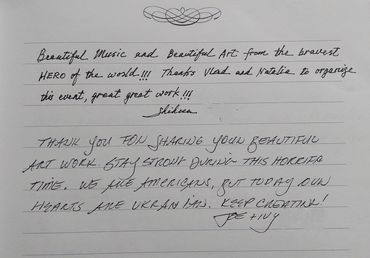 Beautiful Music and Beautiful Art from the bravest
HERO of the world!!! Thanks Vlad and Natalia to organize
this event, great great work!!!
THANK YOU FOR SHARING YOUR BEAUTIFUL
ART WORK. STAY STRONG DURING THIS HORRIFIC
TIME. WE ARE AMERICANS, BUT TODAY OUR
HEARTS ARE UKRANIAN. KEEP CREATING!